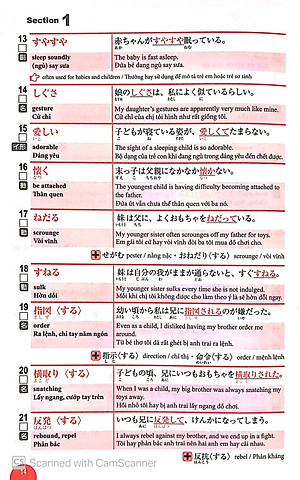 Section 1
13 すやすや 赤ちゃんがすやすや眠っている。
sleep soundly The baby is fast asleep.
(ngủ) say sưa Đứa bé đang ngủ say sưa.
often used for babies and children / Thường hay sử dụng để mô tả trẻ em hoặc trẻ sơ sinh.
14 しぐさ 娘のしぐさは、私によく似ているらしい。
gesture My daughter's gestures are apparently very much like mine.
Cử chỉ Cử chỉ của chị tôi hình như rất giống tôi.
15 愛しい 子どもが寝ている姿が、愛しくてたまらない。
イ形 adorable The sight of a sleeping child is so adorable.
Đáng yêu Bộ dạng của trẻ con khi đang ngủ trông đáng yêu đến chết được.
16 懐く 末っ子は父親になかなか懐かない。
動 be attached The youngest child is having difficulty becoming attached to
Thân quen the father.
Đứa út vẫn chưa thể thân quen với ba nó.
17 ねだる 妹は父に、よくおもちゃをねだっている。
動 scrounge My younger sister often scrounges off my father for toys.
Vòi vĩnh Em gái tôi cứ hay vòi vĩnh đòi ba tôi mua đồ chơi cho.
せがむ pester / nằng nặc・おねだり〈する〉 scrounge / Vòi vĩnh
18 すねる 妹は自分のわがままが通らないと、すぐすねる。
動 sulk My younger sister sulks every time she is not indulged.
Hờn dỗi Mỗi khi chị tôi không được cho làm theo ý là sẽ hờn dỗi ngay.
19 指図〈する〉 幼い頃から私は兄に指図されるのが嫌だった。
名 order Even as a child, I disliked having my brother order me
Ra lệnh, chỉ tay năm ngón around.
Từ bé thơ tôi đã rất ghét bị anh trai ra lệnh.
指示〈する〉 direction / chỉ thị・命令〈する〉 order / mệnh lệnh
20 横取り〈する〉 子どもの頃、兄にいつもおもちゃを横取りされた。
名 snatching When I was a child, my big brother was always snatching my
Lấy ngang, cướp tay trên toys away.
Hồi nhỏ tôi hay bị anh trai lấy ngang đồ chơi.
21 反発〈する〉 いつも兄に反発して、けんかになってしまう。
名 rebound, repel I always rebel against my brother, and we end up in a fight.
Phản bác Tôi hay phản bác anh trai nên hai anh em hay cãi nhau.
反抗〈する〉 rebel / Phản kháng
CS Scanned with CamScanner
14